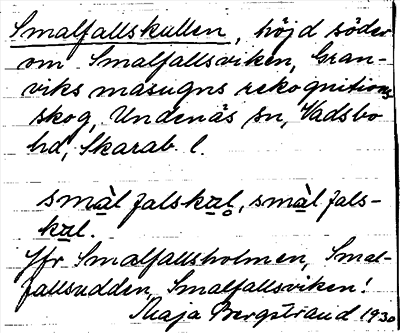 Smalfallskullen, höjd söder
om Smalfallsviken, Gran-
viks masugns rekognitions
skog, Undenäs sn, Vadsbo
hd, Skarab. l.
smàl falskal, smàl fals-
kal.
Jfr Smalfallsholmen, Smal-
fallsudden, Smalfallsviken!
Maja Bergstrand 1930